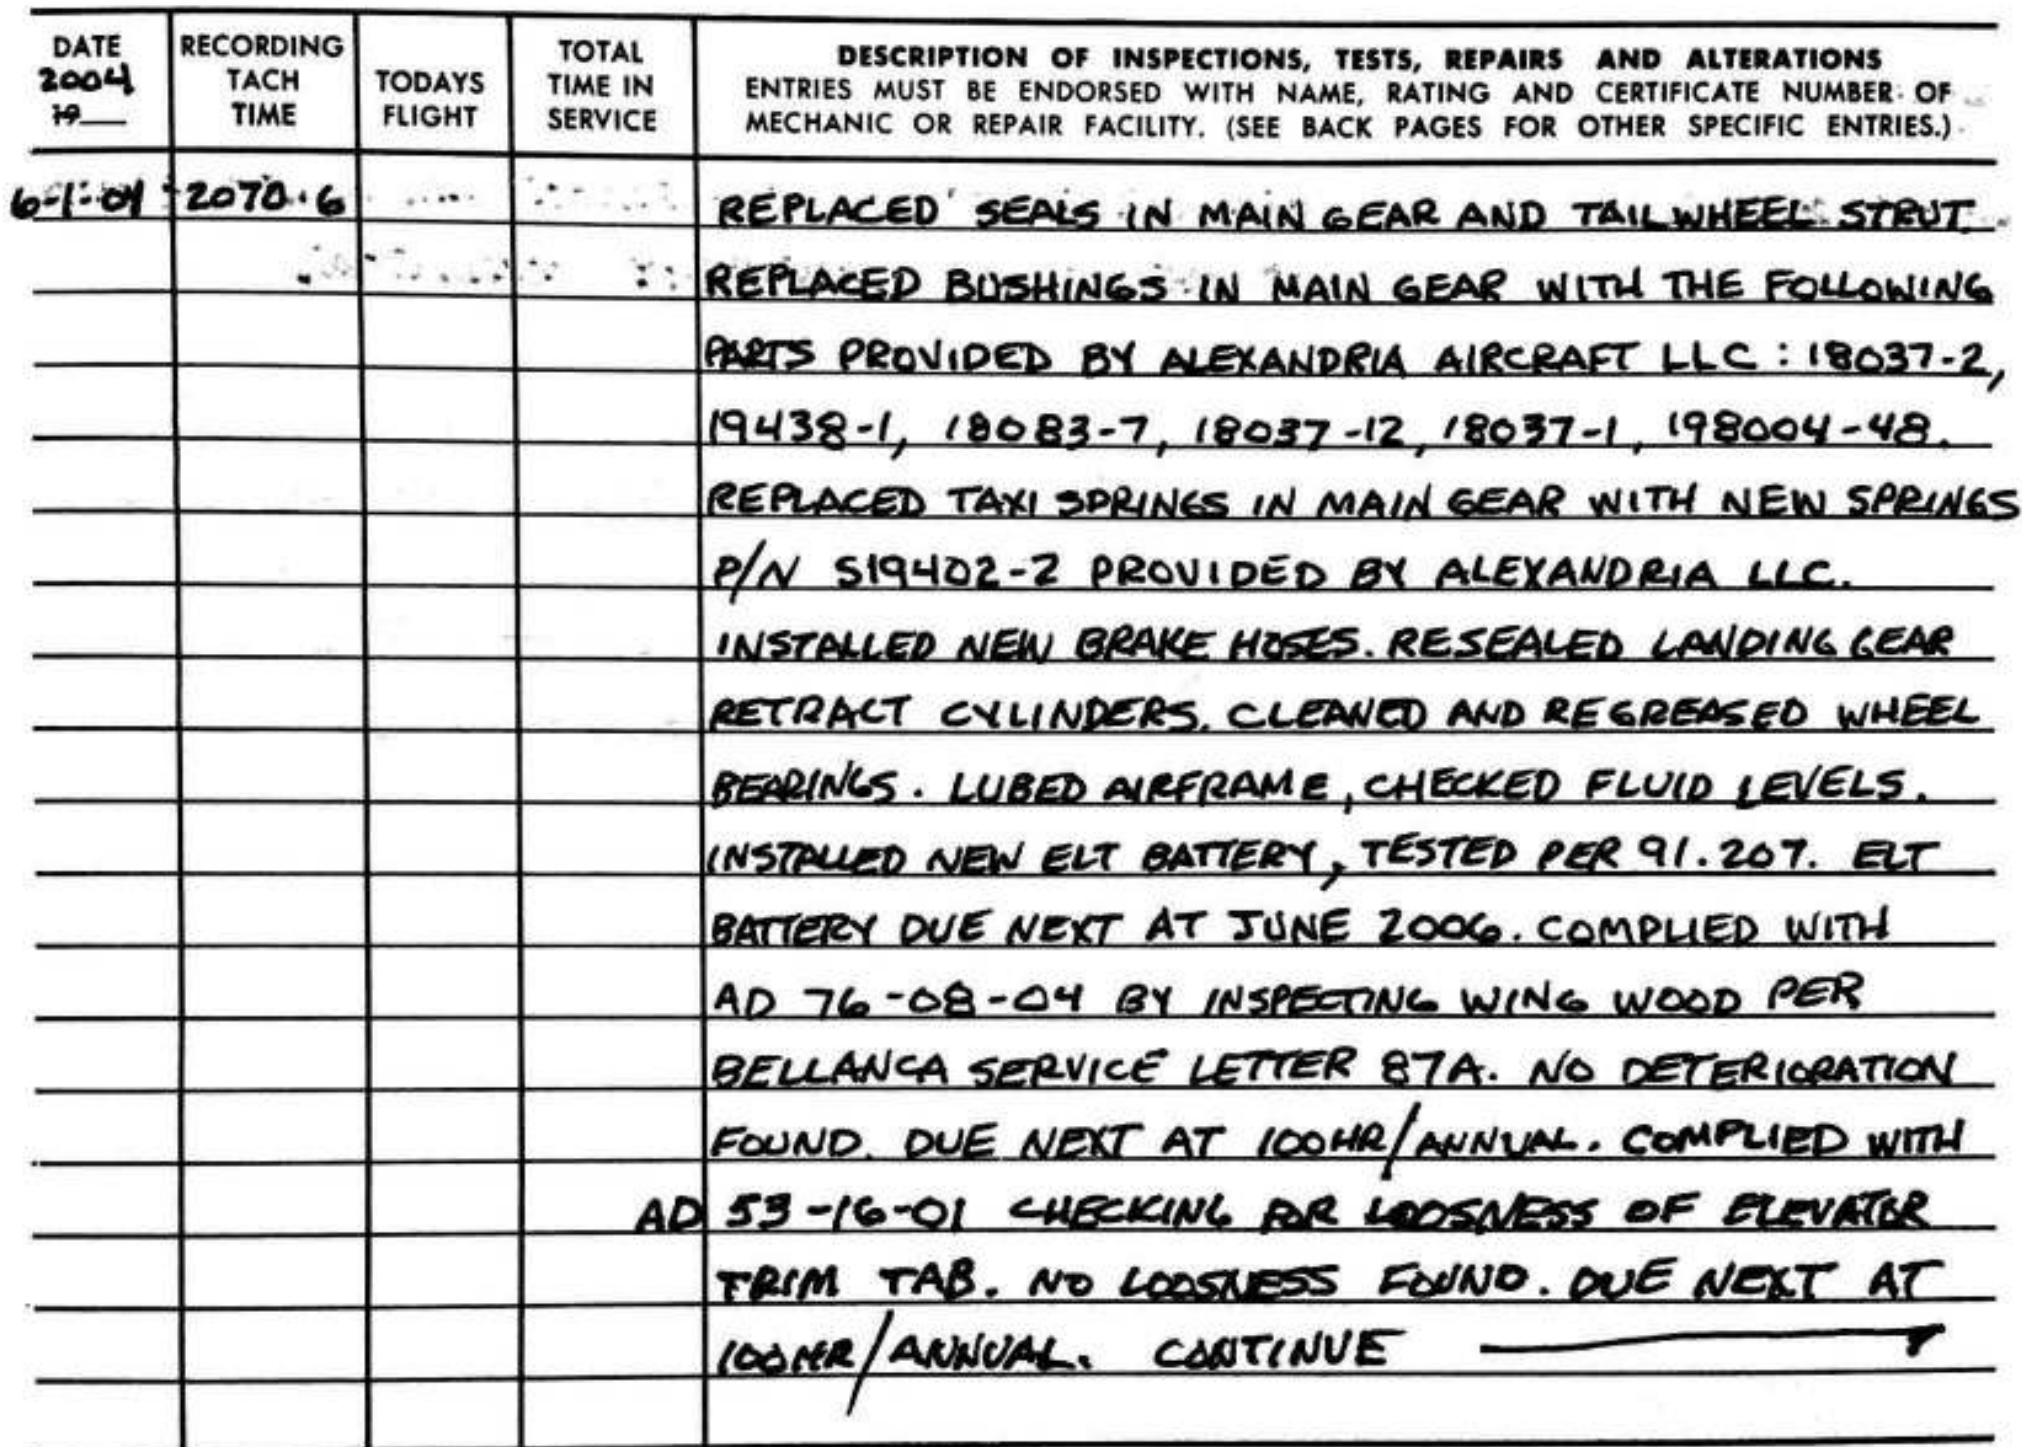 DATE 2004 19__
RECORDING TACH TIME
TODAYS FLIGHT
TOTAL TIME IN SERVICE
DESCRIPTION OF INSPECTIONS, TESTS, REPAIRS AND ALTERATIONS
ENTRIES MUST BE ENDORSED WITH NAME, RATING AND CERTIFICATE NUMBER OF
MECHANIC OR REPAIR FACILITY. (SEE BACK PAGES FOR OTHER SPECIFIC ENTRIES.)
6-1-04 2070.6 REPLACED SEALS IN MAIN GEAR AND TAILWHEEL STRUT.
REPLACED BUSHINGS IN MAIN GEAR WITH THE FOLLOWING
PARTS PROVIDED BY ALEXANDRIA AIRCRAFT LLC: 18037-2,
19438-1, 18083-7, 18037-12, 18037-1, 198004-48.
REPLACED TAXI SPRINGS IN MAIN GEAR WITH NEW SPRINGS
P/N S19402-2 PROVIDED BY ALEXANDRIA LLC.
INSTALLED NEW BRAKE HOSES. RESEALED LANDING GEAR
RETRACT CYLINDERS. CLEANED AND REGREASED WHEEL
BEARINGS. LUBED AIRFRAME, CHECKED FLUID LEVELS.
INSTALLED NEW ELT BATTERY, TESTED PER 91.207. ELT
BATTERY DUE NEXT AT JUNE 2006. COMPLIED WITH
AD 76-08-04 BY INSPECTING WING WOOD PER
BELLANCA SERVICE LETTER 87A. NO DETERIORATION
FOUND. DUE NEXT AT 100HR/ANNUAL. COMPLIED WITH
AD 53-16-01 CHECKING FOR LOOSNESS OF ELEVATOR
TRIM TAB. NO LOOSNESS FOUND. DUE NEXT AT
100HR/ANNUAL. CONTINUE